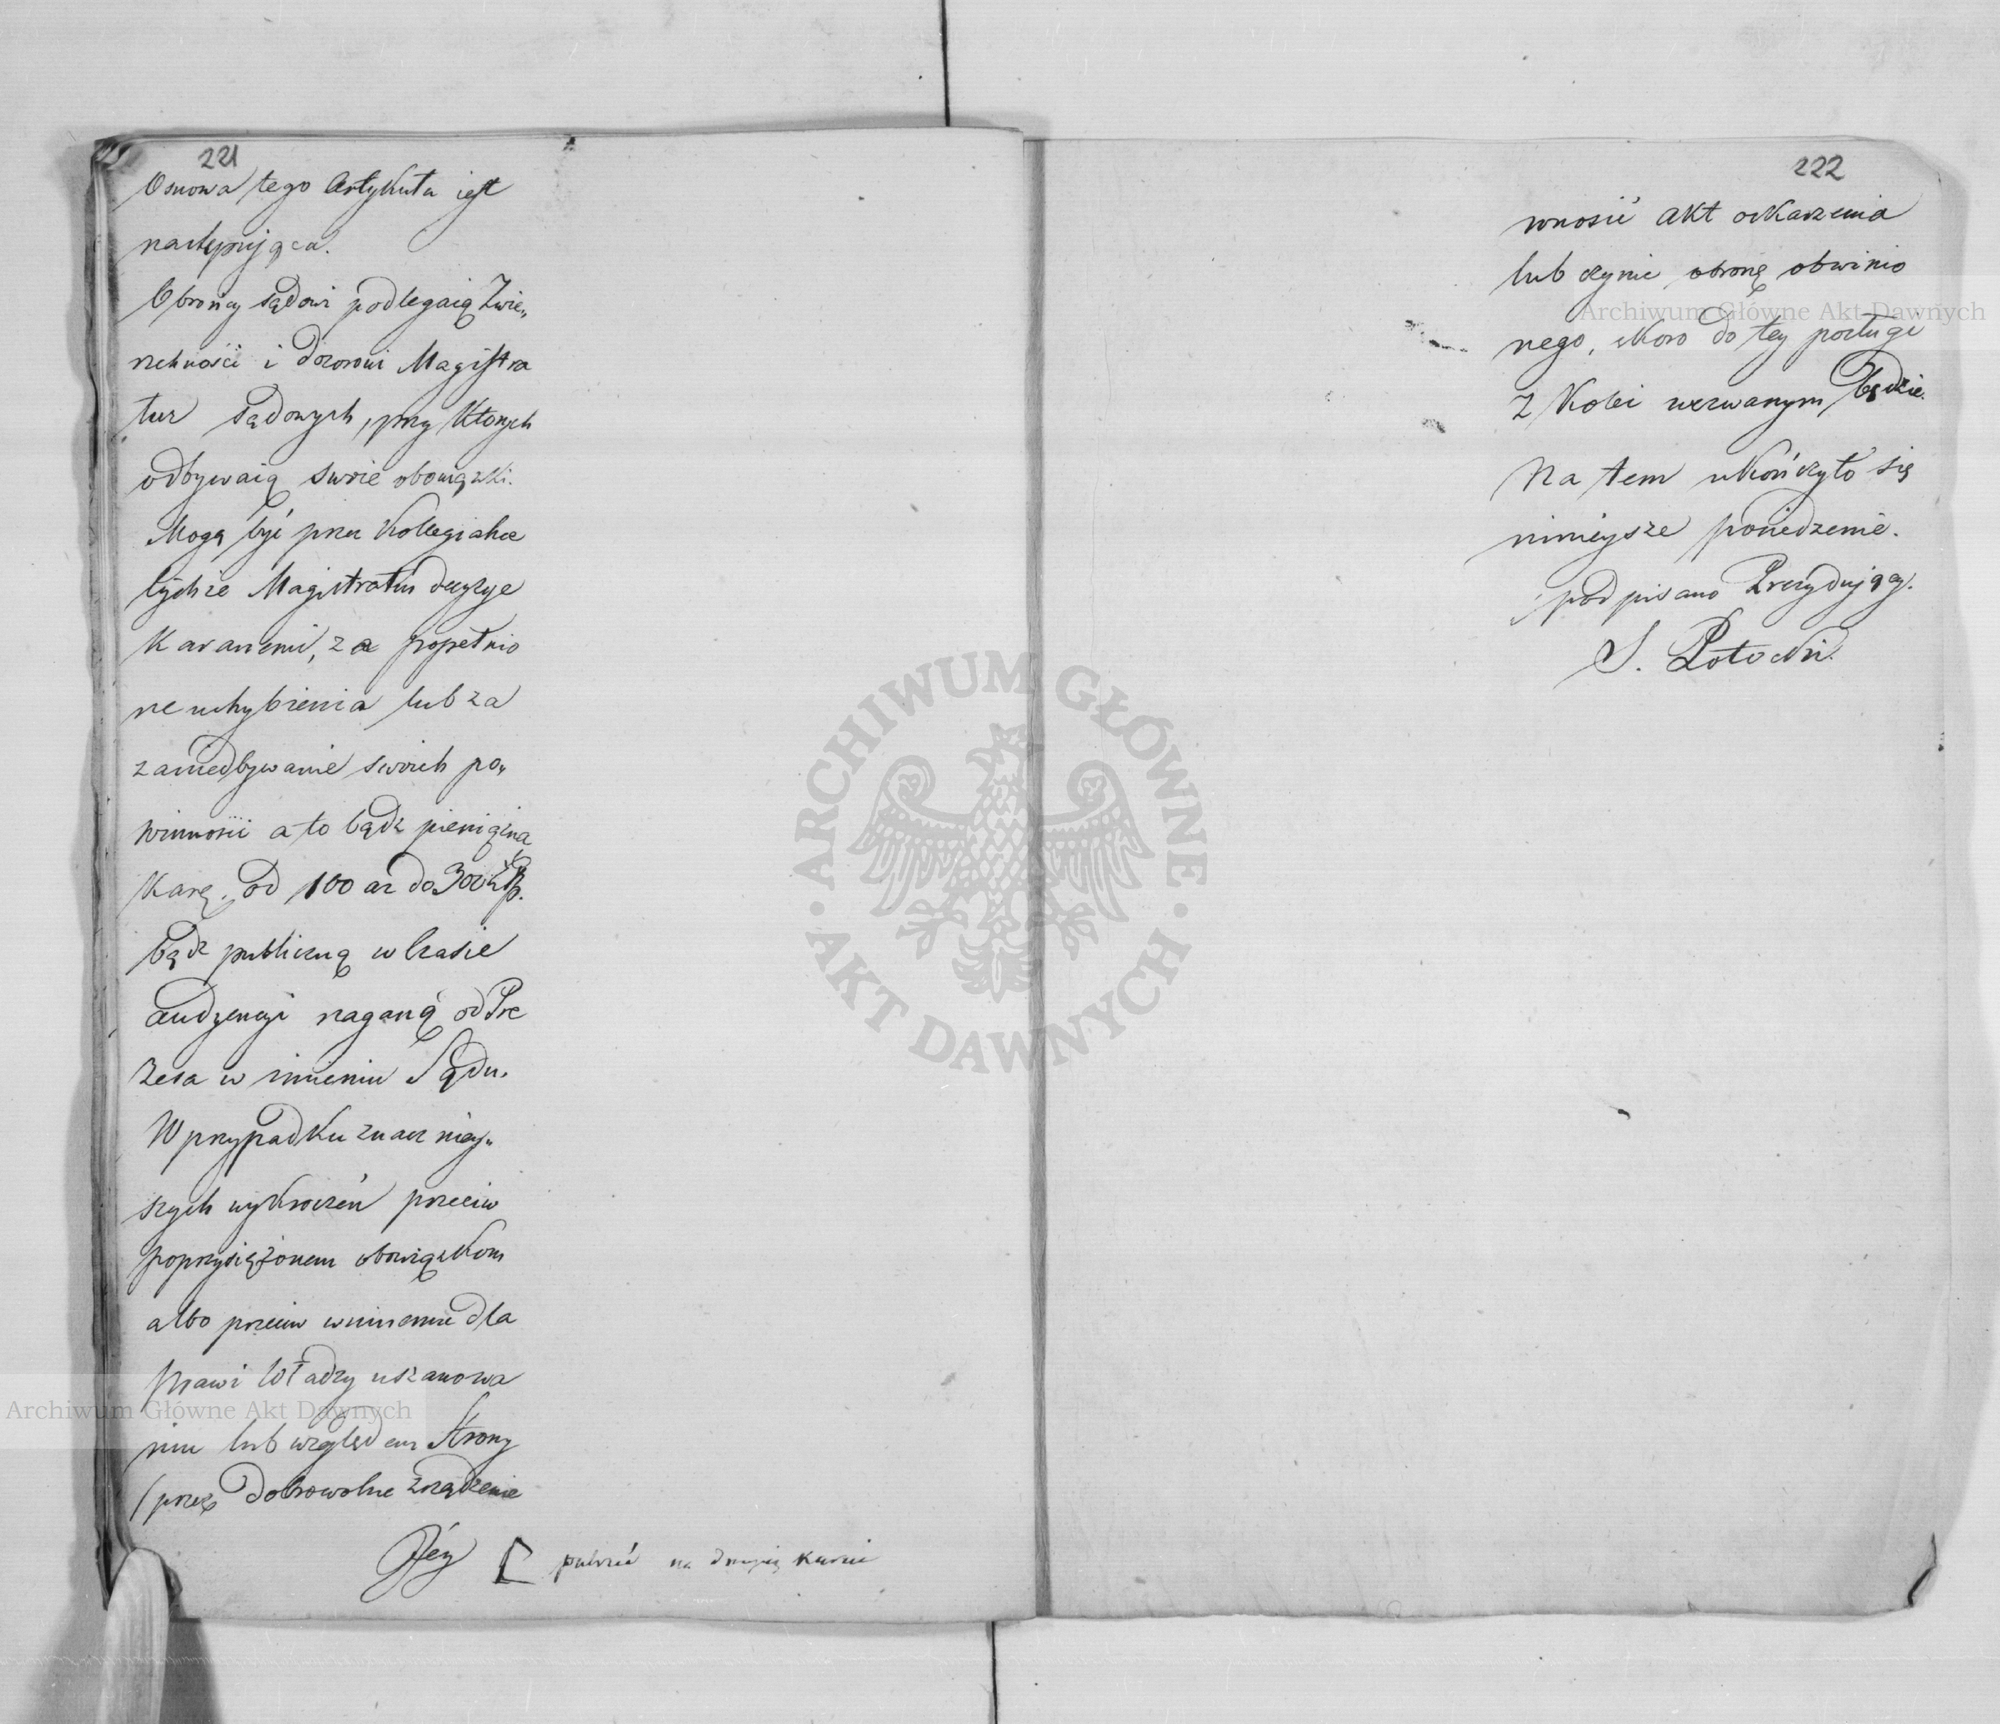 221
Osnowa tego Artykułu iest
następująca.
Obrońcy sądowi podlegaią Zwie„
rzchności i dozorowi Magistra
tur sądowych, przy których
odbywaią swoie obowiązki.
Mogą być przez Kollegialne
tychże Magistratur decyzye
karanemi, za popełnio
ne uchybienia lub za
zaniedbywanie swoich po„
winności a to bądź pieniężną
karą. od 100 aż do 300 złp.
bądź publiczną w czasie
audyencyi naganą od Pre
zesa w imieniu Sądu.
W przypadku znaczniey„
szych wykroczeń przeciw
poprzysiężonem obowiązkom
albo przeciw winnemu dla
prawi Władzy uszanowa
niu lub względem Strony
(przez dobrowolne zrządzenie
Jéy [ patrzeć na drugiéj karcie
222
wnosić akt oskarzenia
lub czynić obronę obwinio
nego, skoro do tey posługi
z kolei wezwanym będzie.
Na tem ukończyło się
ninieysze posiedzenie.
podpisano Prezydujący.
S. Potocki.
Archiwum Główne Akt Dawnych
Archiwum Główne Akt Dawnych
ARCHIWUM GŁÓWNE · AKT DAWNYCH ·